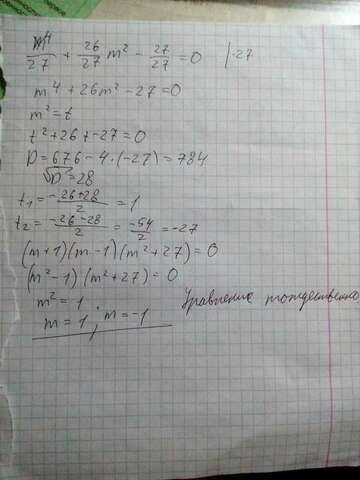 m⁴/27 + 26/27 m² - 27/27 = 0 |·27
m⁴ + 26m² - 27 = 0
m² = t
t² + 26t - 27 = 0
D = 676 - 4·(-27) = 784
√D = 28
t₁ = (-26+28)/2 = 1
t₂ = (-26-28)/2 = -54/2 = -27
(m+1)(m-1)(m²+27) = 0
(m²-1)(m²+27) = 0
m² = 1
m = 1 ; m = -1
Уравнение тождественно